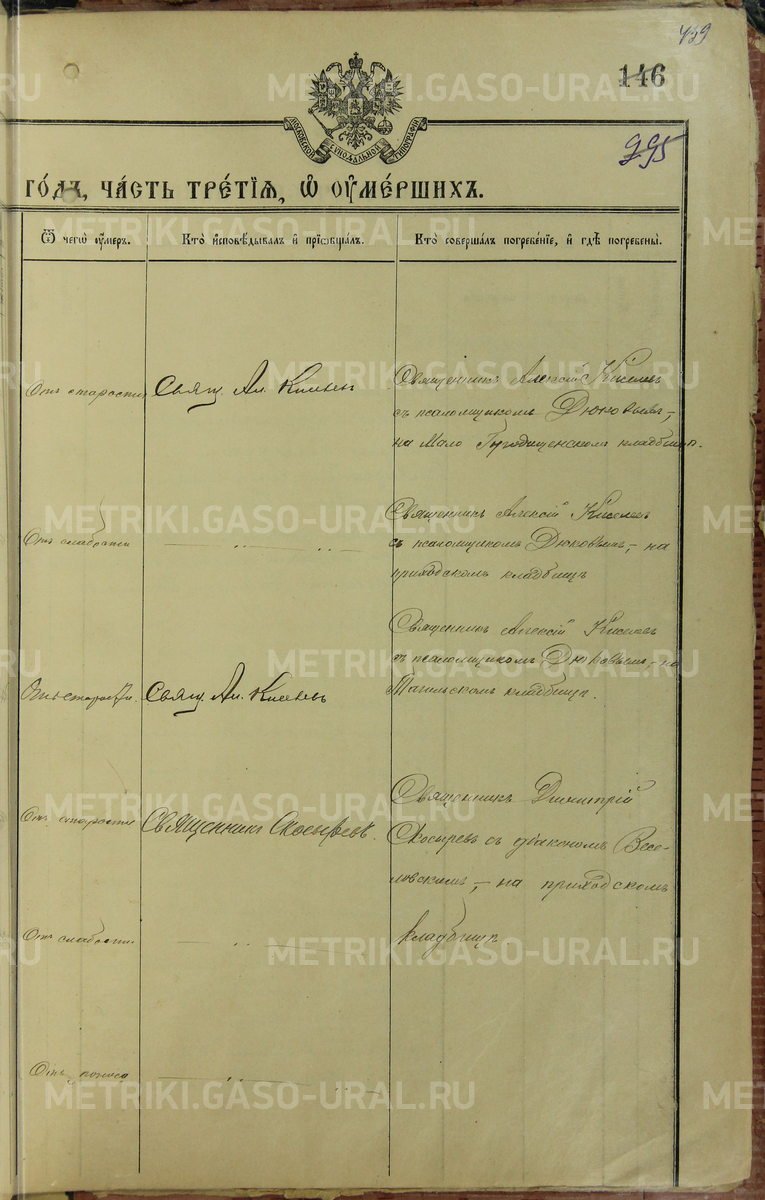 459
146
995
МОСКОВСКОЙ СѴНОДАЛЬНОЙ ТИПОГРАФІИ
ГО́ДЪ, ЧА́СТЬ ТРЕ́ТІѦ, Ѡ҆ ОУ҆МЕ́РШИХЪ.
Ѿ чегѡ̀ оу҆́меръ. Кто̀ и҆сповѣ́дывалъ и҆ прїѡбща́лъ. Кто̀ соверша́лъ погребе́нїе, и҆ гдѣ̀ погребены̀.
Отъ старости
Свящ. Ал. Киселевъ
Священникъ Алексій Киселевъ
съ псаломщикомъ Дюковымъ,-
на Мало Городищенскомъ кладбищѣ.
Отъ слабости
— „ — „ —
Священникъ Алексій Киселевъ
съ псаломщикомъ Дюковымъ,- на
приходскомъ кладбищѣ
Отъ старости.
Свящ. Ал. Киселевъ
Священникъ Алексій Киселевъ
съ псаломщикомъ Дюковымъ,- на
Тагильскомъ кладбищѣ.
Отъ старости
Священникъ Скосыревъ.
Священникъ Димитрій
Скосыревъ съ діакономъ Весе-
ловскимъ,- на приходскомъ
кладбищѣ
Отъ слабости
— „ — „ —
Отъ поноса
— „ — „ —
METRIKI.GASO-URAL.RU